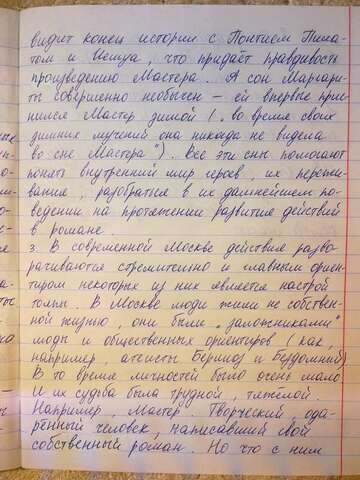 видит конец истории с Понтием Пила-
том и Иешуа, что придаёт правдивость
произведению Мастера. А сон Маргари-
ты совершенно необычен – ей впервые при-
снился Мастер зимой („во время своих
зимних мучений она никогда не видела
во сне Мастера"). Все эти сны помогают
понять внутренний мир героев, их пережи-
вания, разобраться в их дальнейшем по-
ведении на протяжении развития действий
в романе.
3. В современной Москве действия разво-
рачиваются стремительно и главным ориен-
тиром некоторых из них является настрой
толпы. В Москве люди жили не собствен-
ной жизнью, они были „заложниками"
моды и общественных ориентиров (как,
например, атеисты Берлиоз и Бездомный)
В то время личностей было очень мало
И их судьба была трудной, тяжелой.
Например, Мастер. Творческий, ода-
ренный человек, написавший свой
собственный роман. Но что с ним